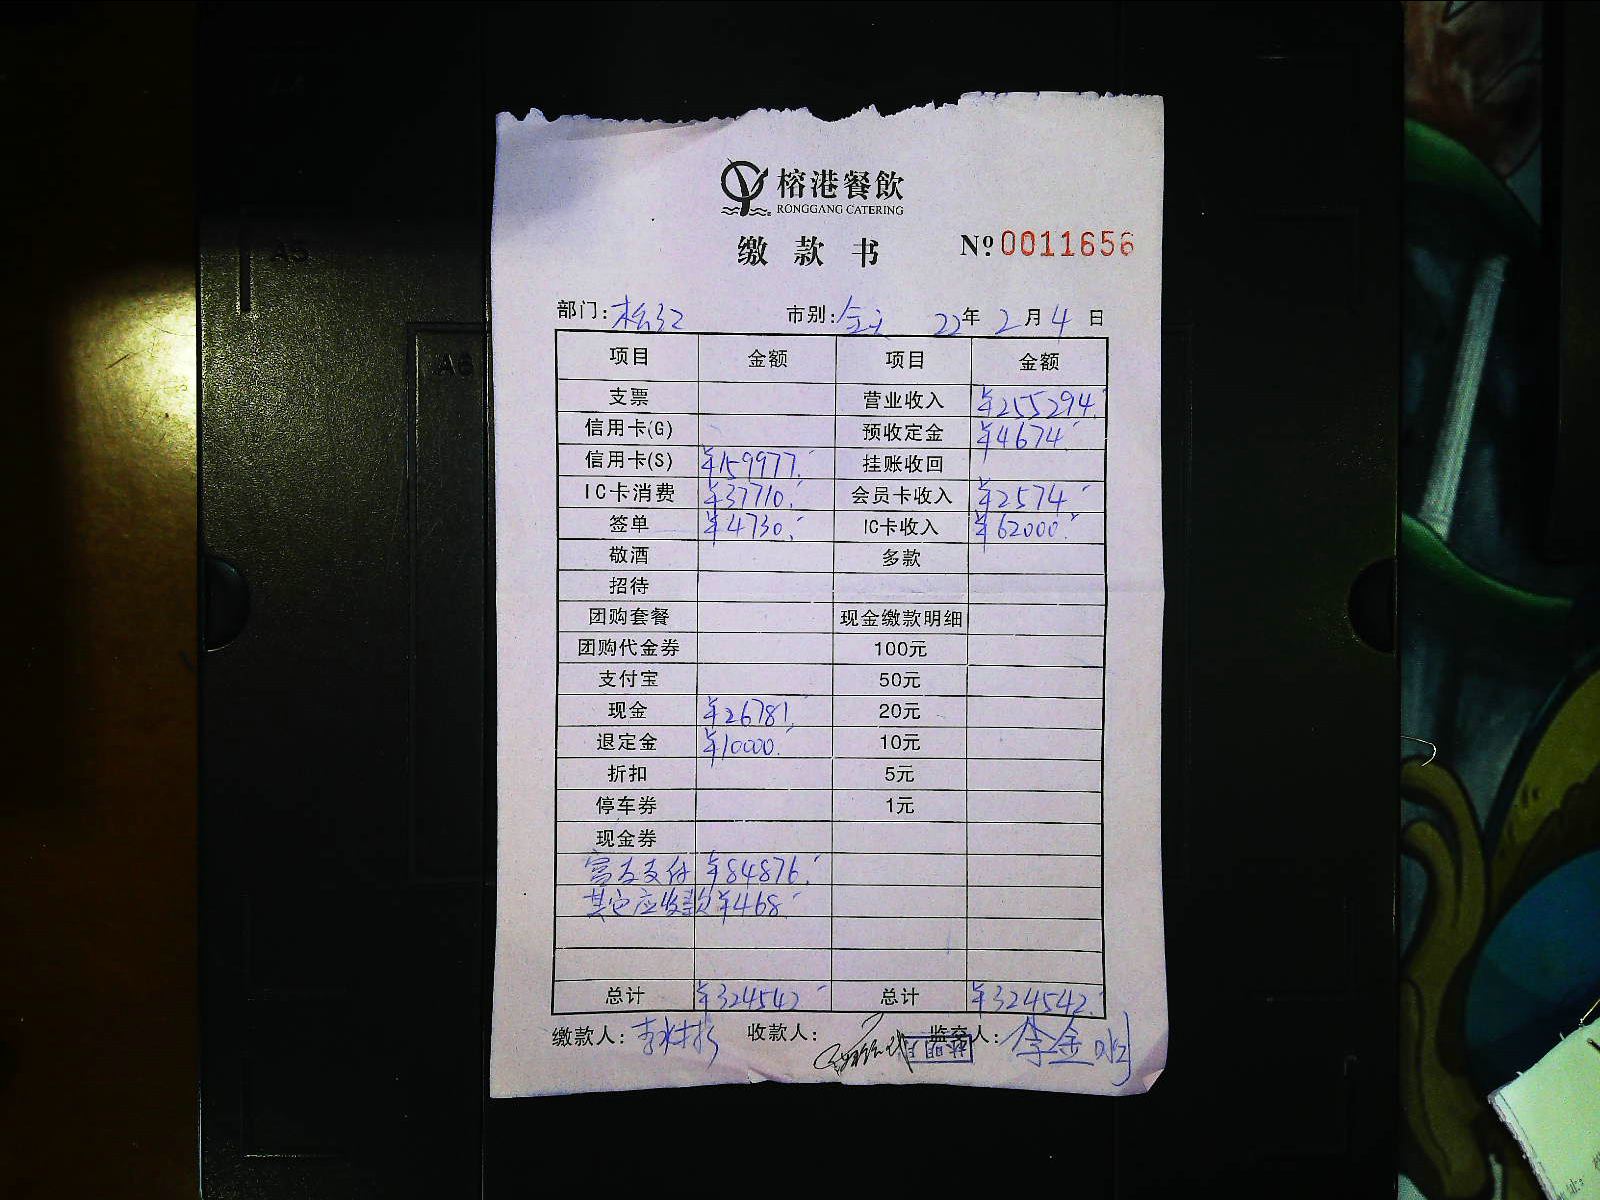 榕港餐飲
RONGGANG CATERING
缴款书 Nº 0011656
部门: 松江 市别: 全市 22年 2月 4日
项目 金额 项目 金额
支票 营业收入 ¥255294.-
信用卡(G) 预收定金 ¥4674.-
信用卡(S) ¥159977.- 挂账收回
IC卡消费 ¥37710.- 会员卡收入 ¥2574.-
签单 ¥4730.- IC卡收入 ¥62000.-
敬酒 多款
招待
团购套餐 现金缴款明细
团购代金券 100元
支付宝 50元
现金 ¥26781.- 20元
退定金 ¥10000.- 10元
折扣 5元
停车券 1元
现金券
富友支付 ¥84876.-
其它应收款 ¥468.-
总计 ¥324542.- 总计 ¥324542.-
缴款人: 收款人: 监交人: 李金
A5
A6